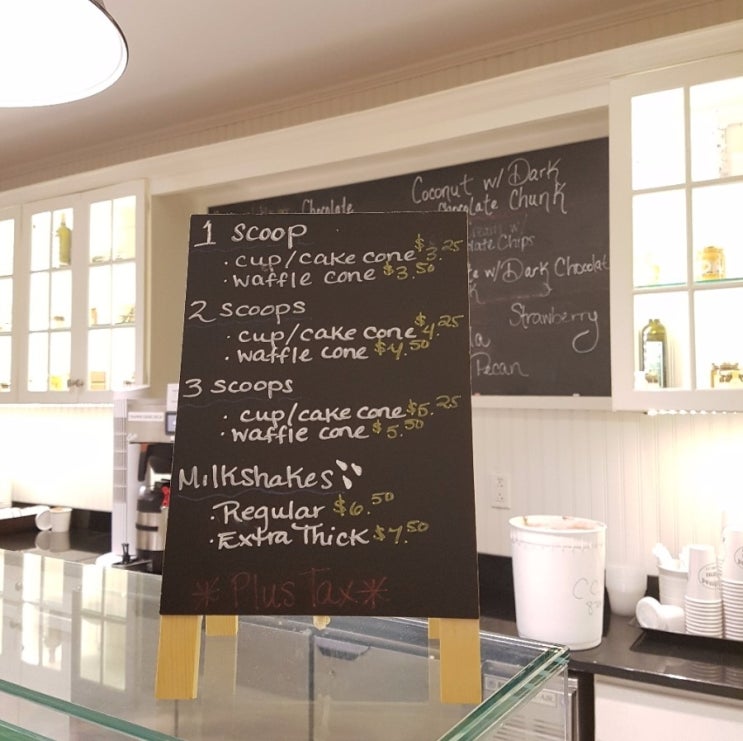 1 scoop
• cup/cake cone $3.25
• waffle cone $3.50
2 scoops
• cup/cake cone $4.25
• waffle cone $4.50
3 scoops
• cup/cake cone $5.25
• waffle cone $5.50
Milkshakes
• Regular $6.50
• Extra Thick $7.50
* Plus Tax *
Chocolate
Coconut w/ Dark
Chocolate Chunk
w/
Chips
w/ Dark Chocolat
Strawberry
Pecan